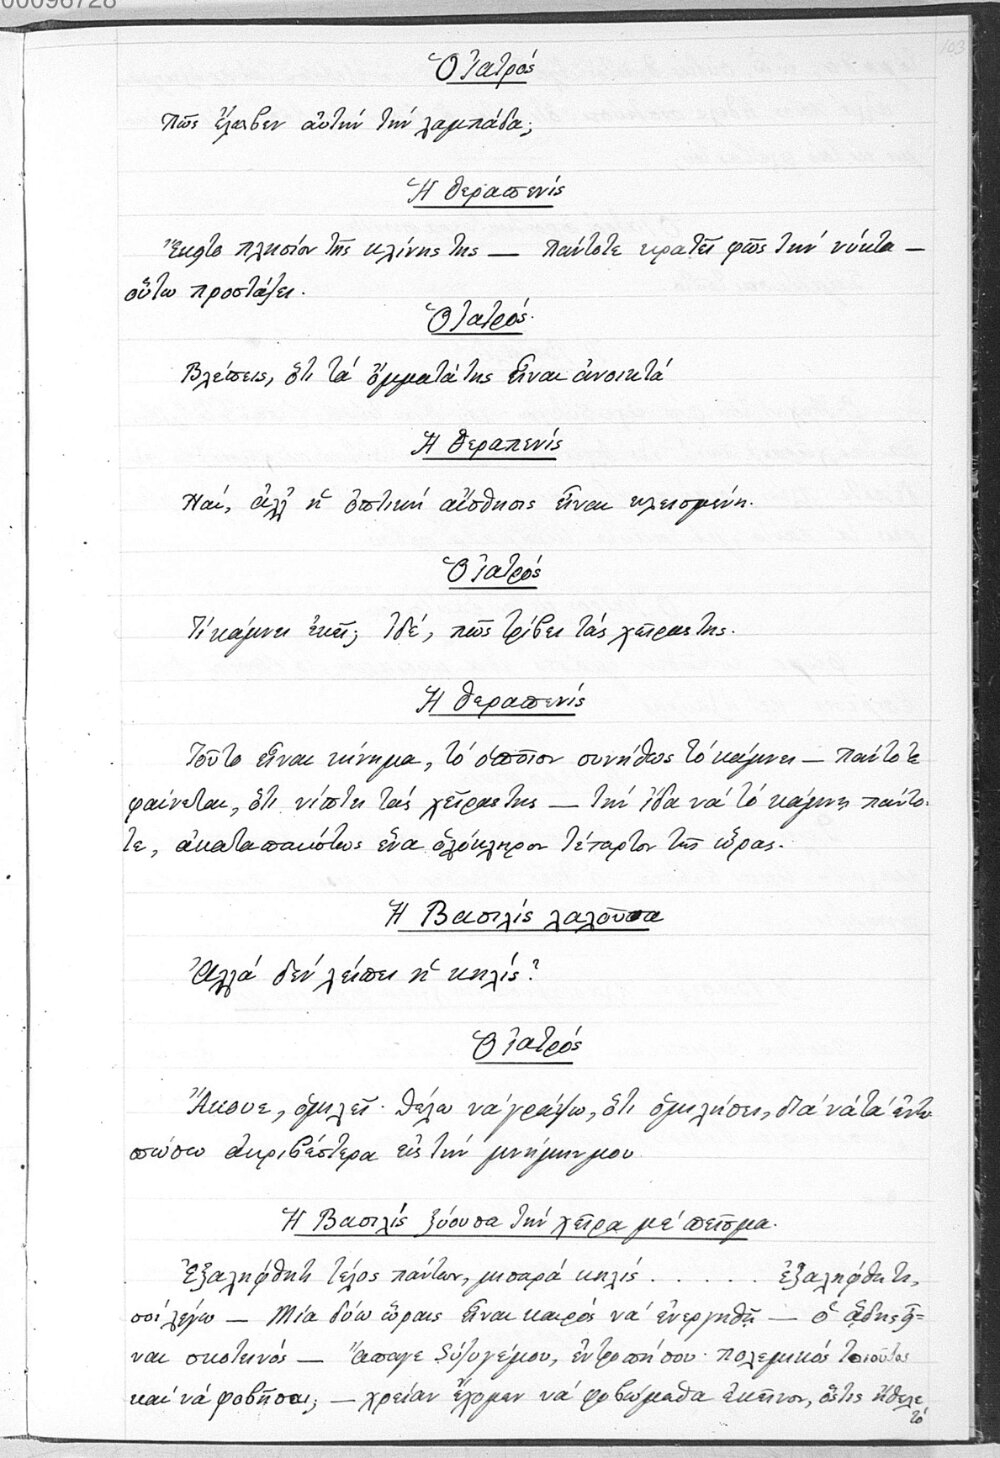 00096728
103
Ὁ Ἰατρός
Πῶς ἔλαβεν αὐτήν τήν λαμπάδα;
Ἡ θεραπενίς
Ἔκειτο πλησίον τῆς κλίνης της — Πάντοτε κρατεῖ φῶς τήν νύκτα —
οὕτω προστάξει.
Ὁ Ἰατρός.
Βλέπεις, ὅτι τά ὄμματά της εἶναι ἀνοικτά
Ἡ θεραπενίς
Ναί, ἀλλ' ἡ ὀπτική αἴσθησις εἶναι κλεισμένη.
Ὁ Ἰατρός
Τί κάμνει ἐκεῖ; Ἰδέ, πῶς τρίβει τάς χεῖρας της.
Ἡ θεραπενίς
Τοῦτο εἶναι κίνημα, τό ὁποῖον συνήθως τό κάμνει — πάντοτε
φαίνεται, ὅτι νίπτει τάς χεῖρας της — τήν ἶδα νά τό κάμνῃ πάντο-
τε, ἀκαταπαύστως ἕνα ὁλόκληρον τέταρτον τῆς ὥρας.
Ἡ Βασιλίς λαλοῦσα
Ἀλλά δέν λείπει ἡ κηλίς?
Ὁ Ἰατρός
Ἄκουε, ὁμιλεῖ. Θέλω νά γράψω, ὅτι ὁμιλήσει, διά νά τά ἐντυ
πώσω ἀκριβέστερα εἰς τήν μνήμην μου
Ἡ Βασιλίς ξύουσα τήν χεῖρα μέ πεῖσμα.
Ἐξαλήφθητι τέλος πάντων, μιαρά κηλίς . . . . . . ἐξαλήφθητι,
σοί λέγω — Μία δύω ὥραις εἶναι καιρός νά ἐνεργηθῇ — ὁ ᾅδης εἶ=
ναι σκοτεινός — Ἄπαγε Σύζυγέ μου, ἐντροπή σου. πολεμικός τοιοῦτος
καί νά φοβῆσαι; — χρείαν ἔχομεν νά φοβώμεθα ἐκεῖνον, ὅστις ἤθελε
τό